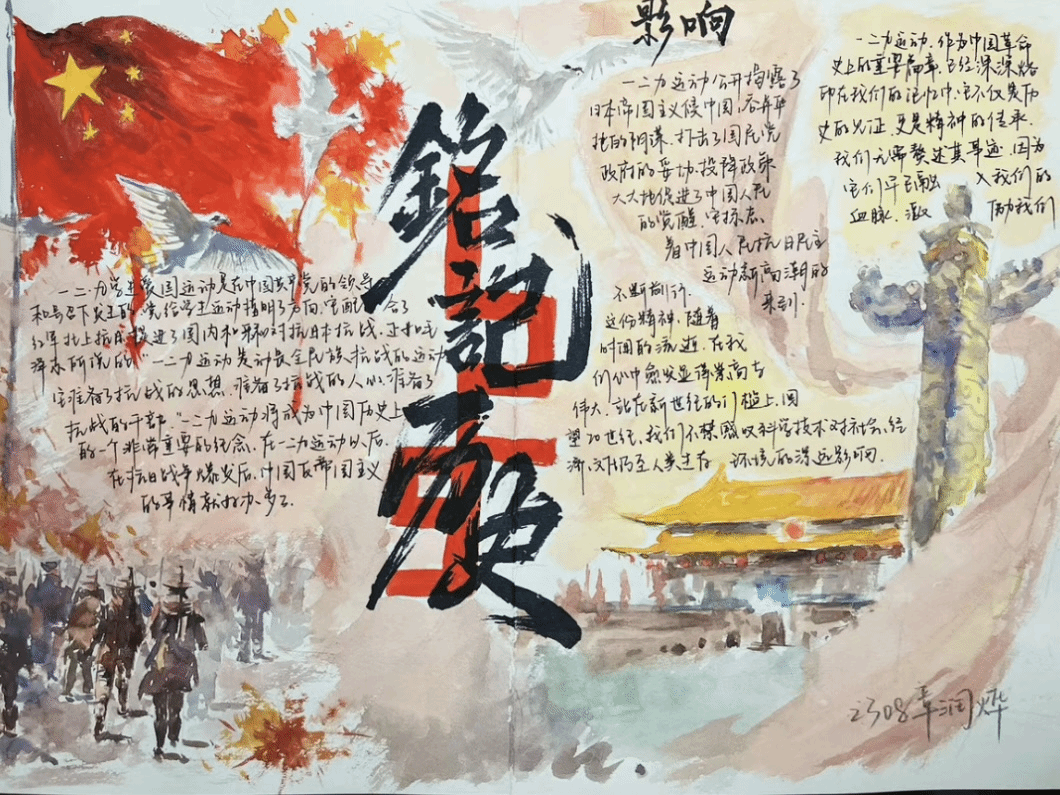 影响
銘記歷史
一二九学生爱国运动是在中国共产党的领导
和号召下发生的。党给学生运动指明了方向,它配合了
红军北上抗日,促进了国内和平和对抗日本抗战,正如毛
泽东所说的,"一二九运动是动员全民族抗战的运动
它准备了抗战的思想,准备了抗战的人心,准备了
抗战的干部"一二九运动将成为中国历史上
的一个非常重要的纪念,在一二九运动以后
在抗日战争爆发后,中国反帝国主义
的事情
一二九运动公开揭露了
日本帝国主义侵中国,吞并华
北的阴谋,打击了国民党
政府的妥协投降政策
大大地促进了中国人民
的觉醒。它标志
着中国人民抗日民主
运动新高潮的
来到。
一二九运动,作为中国革命
史上的重要篇章,已经深深烙
印在我们的记忆中,它不仅是历
史的见证,更是精神的传承。
我们无需赘述其事迹,因为
它们早已融入我们的
血脉,激励我们
不断前行。
这份精神,随着
时间的流逝,在我
们心中愈发显得崇高与
伟大,站在新世纪的门槛上,回
望20世纪,我们不禁感叹科学技术对社会、经
济、文化乃至人类生存环境的深远影响。
2308章润烨